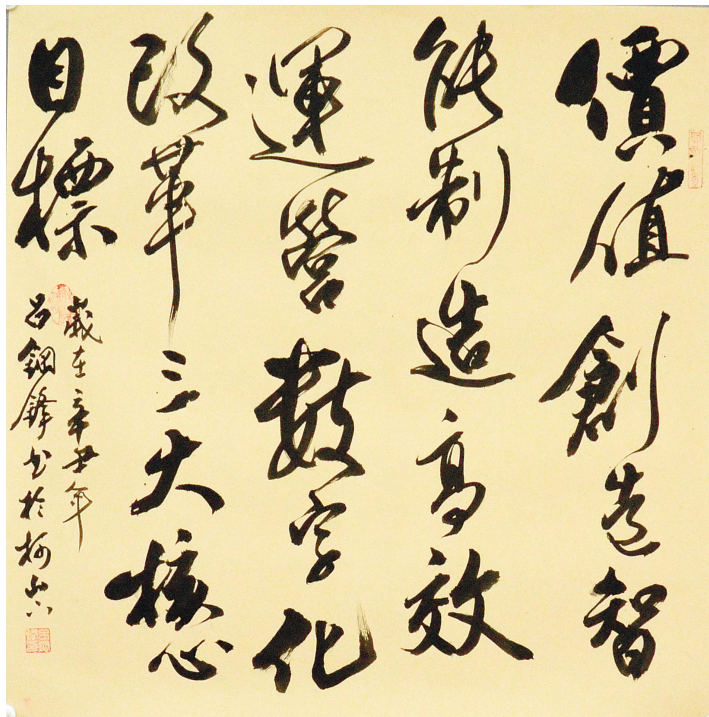 價值創造智
能制造高效
運營數字化
改革三大核心
目標
歲在辛丑年
呂鋼鋒书於柯